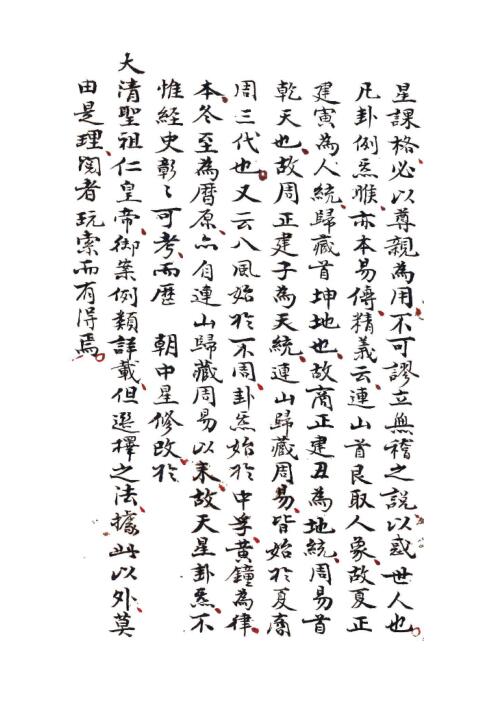 星課格必以尊親為用不可謬立無稽之說以惑世人也
凡卦例炁㬋亦本易傳精義云連山首艮取人象故夏正
建寅為人統歸藏首坤地也故商正建丑為地統周易首
乾天也故周正建子為天統連山歸藏周易皆始於夏商
周三代也又云八風始於不周卦炁始於中孚黃鐘為律
本冬至為曆原亦自連山歸藏周易以來故天星卦炁不
惟經史彰〻可考而歷　朝中星修改於
大清聖祖仁皇帝御案例類詳載但選擇之法據此以外莫
由是理閱者玩索而有得焉